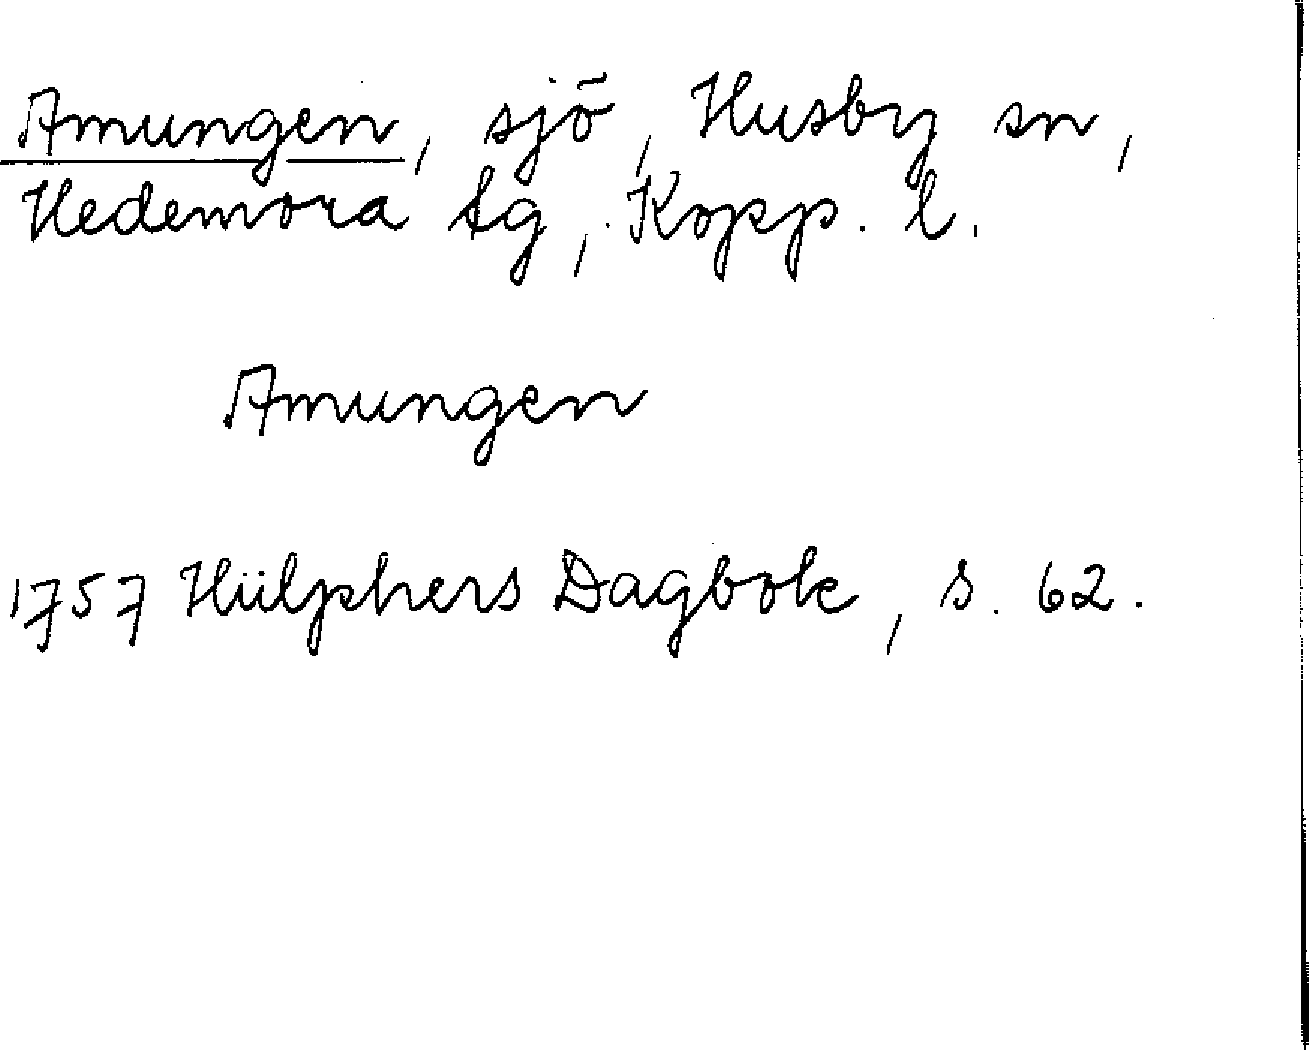 Amungen, sjö, Husby sn,
Hedemora tg, Kopp. l.
Amungen
1757 Hülphers Dagbok, s. 62.